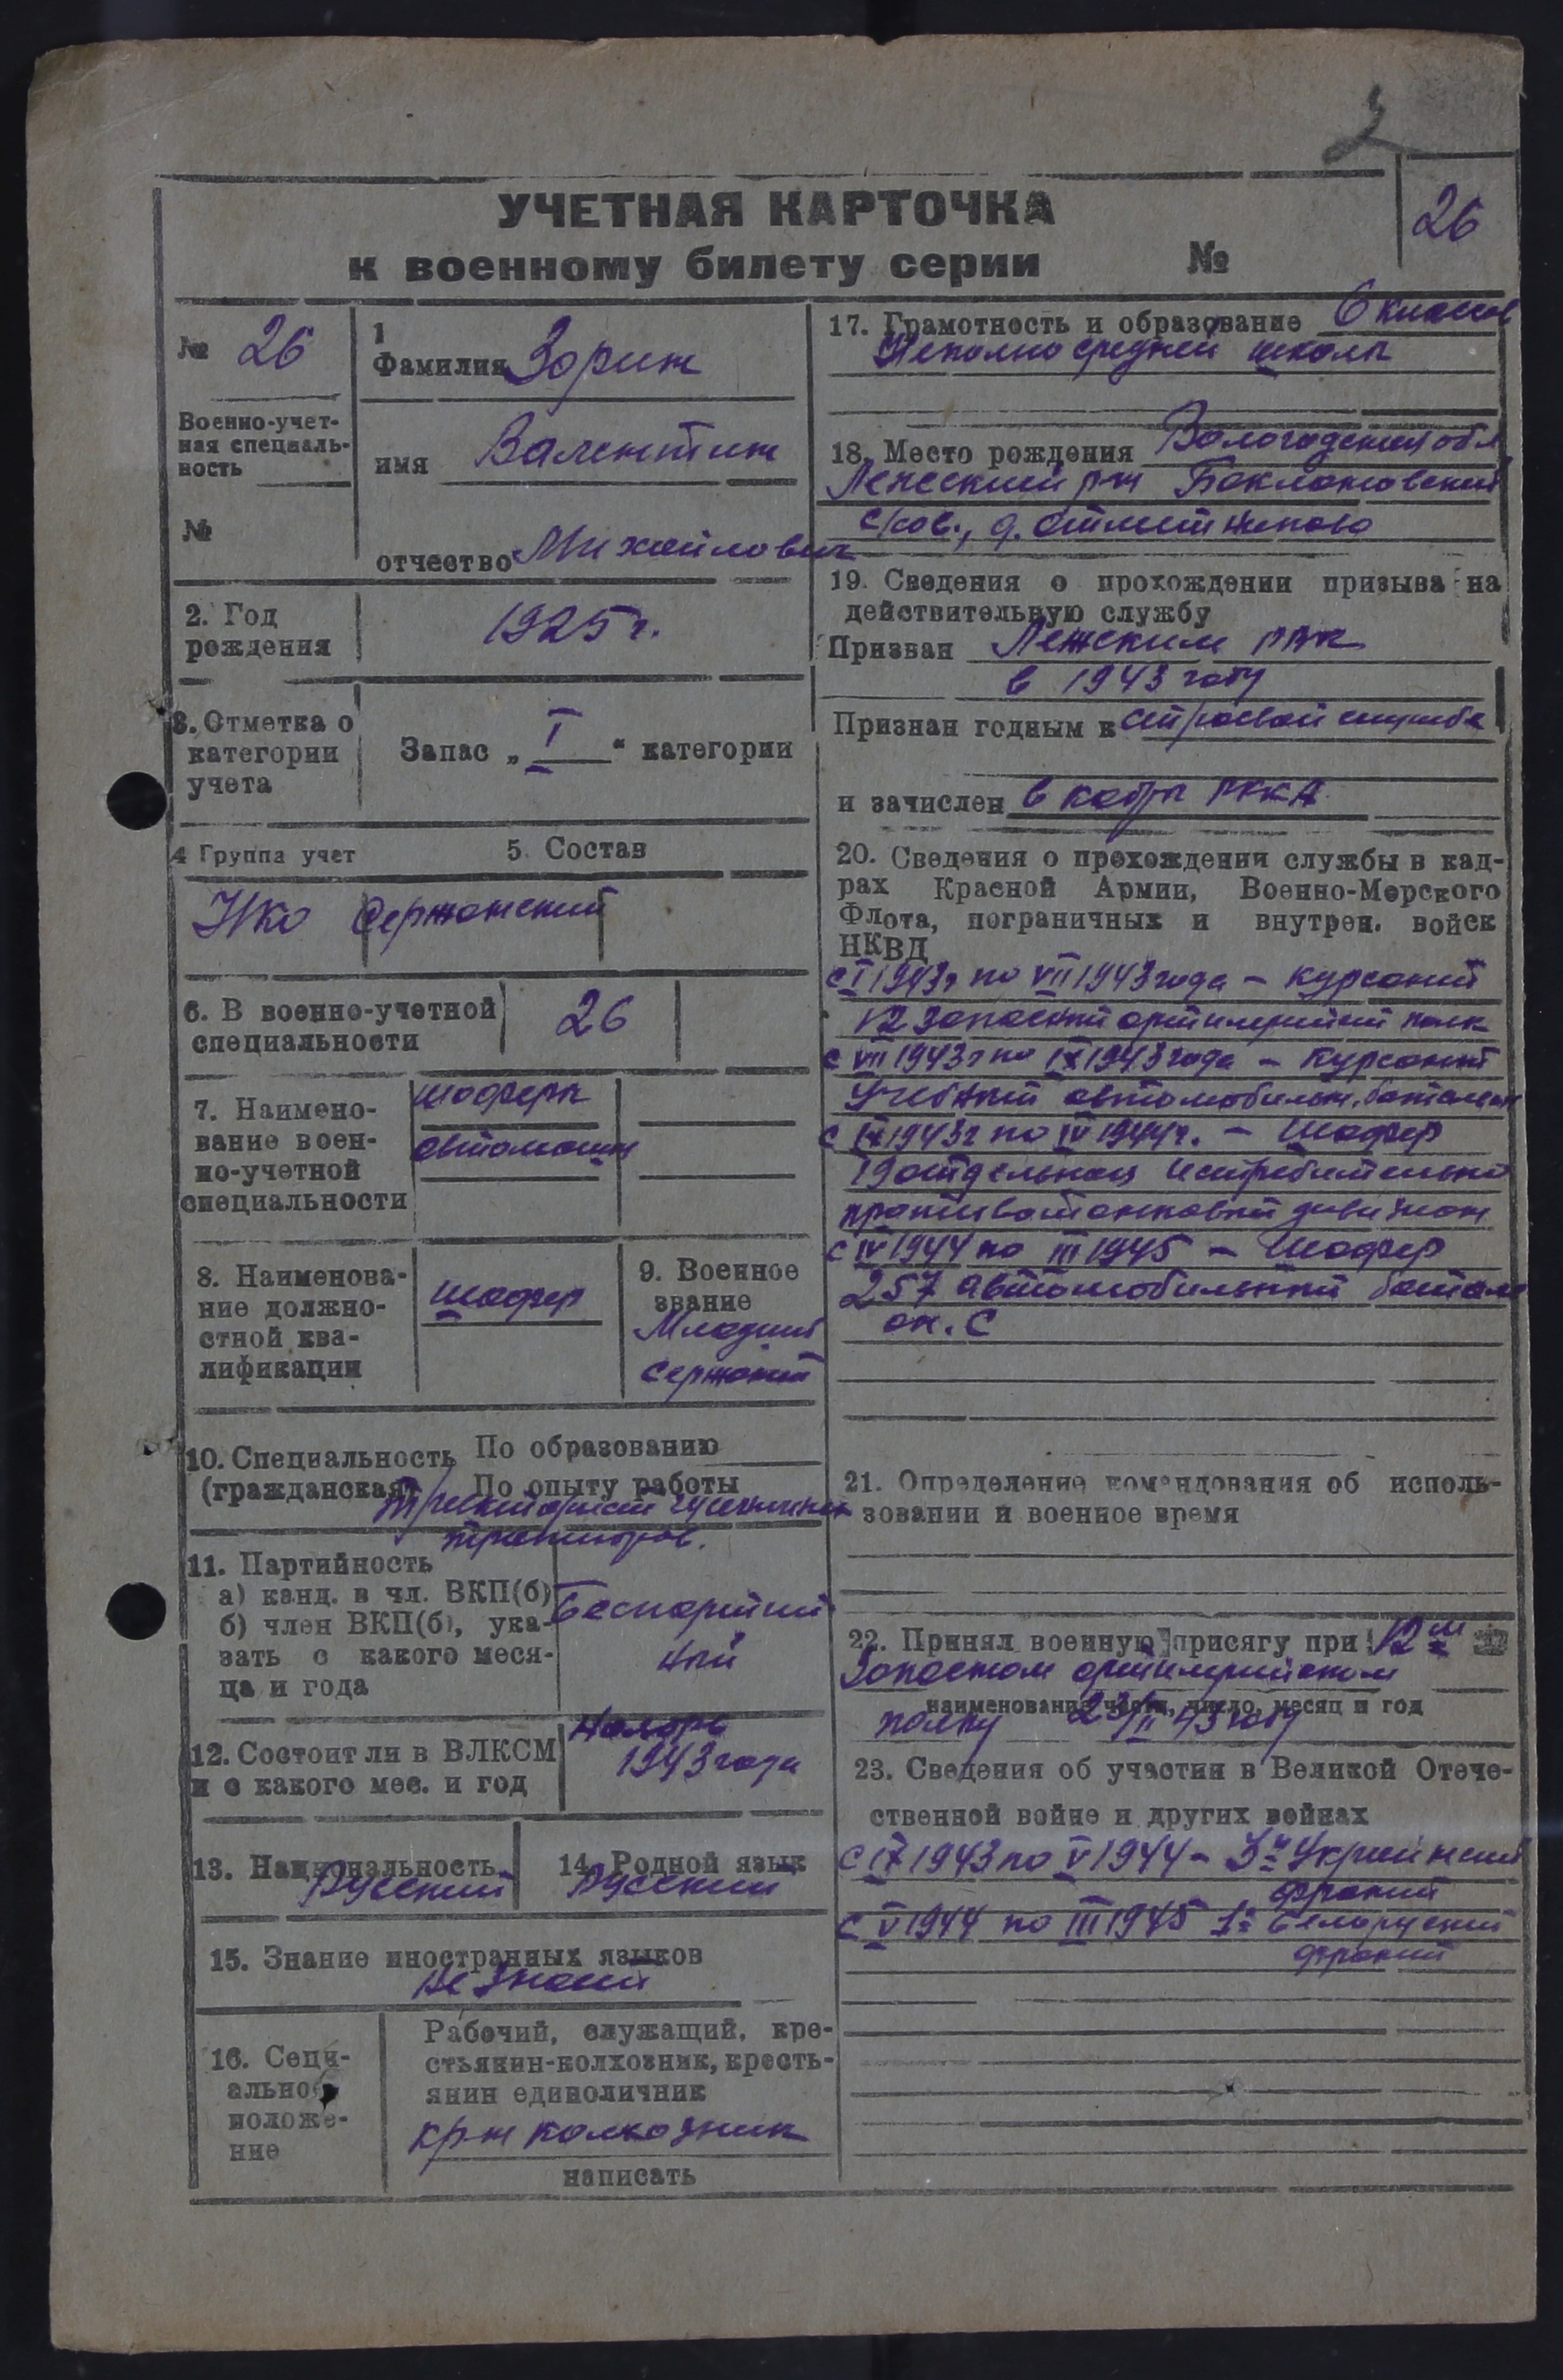 26
УЧЕТНАЯ КАРТОЧКА
к военному билету серии №
№ 26
Военно-учет-
ная специаль-
ность
№
1
Фамилия Зорин
имя Валентин
отчество Михайлович
2. Год
рождения
1925 г.
3. Отметка о
категории
учета
Запас „ I “ категории
4 Группа учет
5. Состав
НКО Сержанский
6. В военно-учетной
специальности
26
7. Наимено-
вание воен-
но-учетной
специальности
шофера
автомашин
8. Наименова-
ние должно-
стной ква-
лификации
шофер
9. Военное
звание
Младший
сержант
10. Специальность По образованию
(гражданская) По опыту работы
гусеничных
тракторов.
11. Партийность
а) канд. в чл. ВКП(б)
б) член ВКП(б), ука-
зать с какого меся-
ца и года
Беспартий
ный
12. Состоит ли в ВЛКСМ
и с какого мес. и год
Ноябрь
1943 года
13. Национальность
Русский
14. Родной язык
Русский
15. Знание иностранных языков
не знает
16. Соци-
ально
положе-
ние
Рабочий, служащий, кре-
стьянин-колхозник, кресть-
янин единоличник
кр-н колхозник
написать
17. Грамотность и образование 6 классов
Неполно средней школы
18. Место рождения Вологодская обл
р-н Баклановский
с/сов., д.
19. Сведения о прохождении призыва на
действительную службу
Призван Лежским РВК
в 1943 году
Признан годным к строевой службе
и зачислен в кадры РККА
20. Сведения о прохождении службы в кад-
рах Красной Армии, Военно-Морского
Флота, пограничных и внутрен. войск
НКВД
с I 1943г по VII 1943 года – курсант
12 запасный артилерийский полк
с VII 1943г по IX 1943 года – курсант
Учебный автомобильн. батальон
с IX 1943г по IV 1944г. – Шофер
19 отдельная истребительно
противотанковый дивизион
с IV 1944 по III 1945 – Шофер
257 автомобильный батал
он. С
21. Определение командования об исполь-
зовании и военное время
22. Принял военную присягу при 12м
Запасном артилерийском
наименование части, число, месяц и год
полку 23/II 43 году
23. Сведения об участии в Великой Отече-
ственной войне и других войнах
с IX 1943 по V 1944 – 3й Украинский
фронт
с V 1944 по III 1945 1й Белоруский
фронт